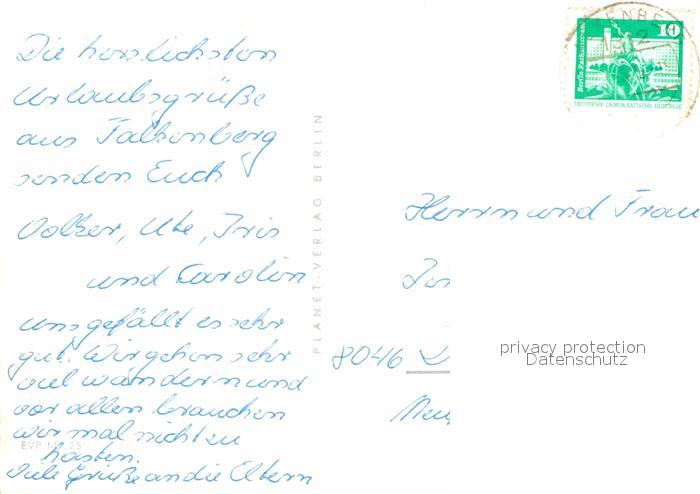 Die herzlichsten
Urlaubsgrüße
aus Falkenberg
senden Euch
Volker, Ute, Iris
und Carolin
uns gefällt es sehr
gut. Wir gehen sehr
viel wandern und
vor allem brauchen
wir mal nicht zu
hasten.
Viele Grüße an die Eltern
EVP M 25
PLANET-VERLAG BERLIN
ENBE
10
Berlin, Rathausstraße
DEUTSCHE DEMOKRATISCHE REPUBLIK
Herrn und Frau
8046 D
privacy protection
Datenschutz